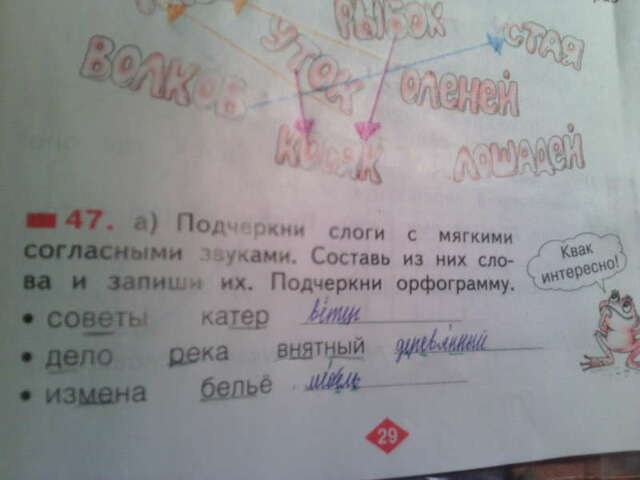 РЫБОК
СТАЯ
УТОК
ВОЛКОВ
ОЛЕНЕЙ
КОСЯК
ЛОШАДЕЙ
47. а) Подчеркни слоги с мягкими
согласными звуками. Составь из них сло-
ва и запиши их. Подчеркни орфограмму.
Квак
интересно!
• советы катер ветер
• дело река внятный деревянный
• измена бельё мебель
29